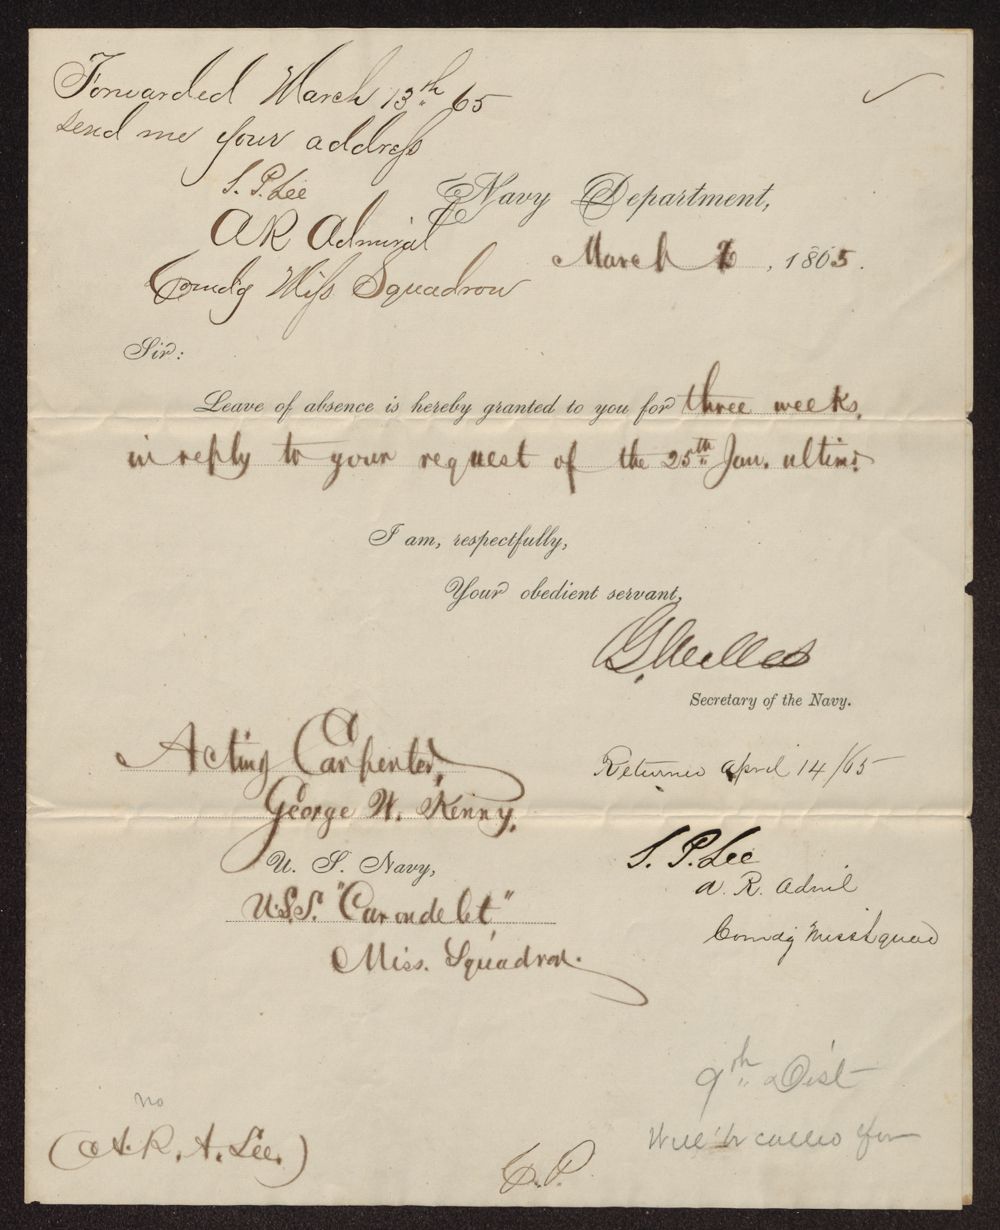 Forwarded March 13th 65
send me your address
S. P. Lee
A R Admiral
Comdg Miss Squadron
Navy Department,
March , 1865.
Sir:
Leave of absence is hereby granted to you for three weeks,
in reply to your request of the 25th Jan. ultimo.
I am, respectfully,
Your obedient servant,
G Welles
Secretary of the Navy.
Acting Carpenter,
George W. Kenny,
U. S. Navy,
U.S.S. "Carondelet"
Miss. Squadron.
Returned April 14/65
S. P. Lee
A. R. Adml
Comdg Miss Squad
9th Dist
Will be called for
no
(A. R. A. Lee.)
C.P.